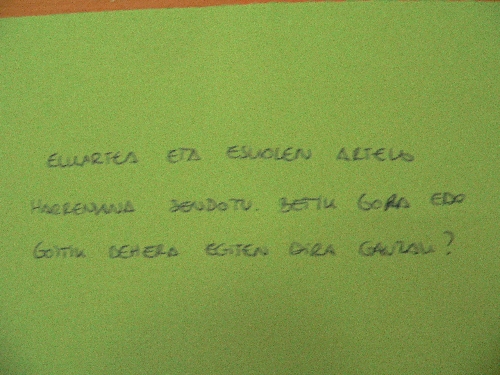 ELKARTEA ETA ESKOLEN ARTEKO
HARREMANA SENDOTU. BETIK GORA EDO
GOITIK BEHERA EGITEN DIRA GAUZAK?